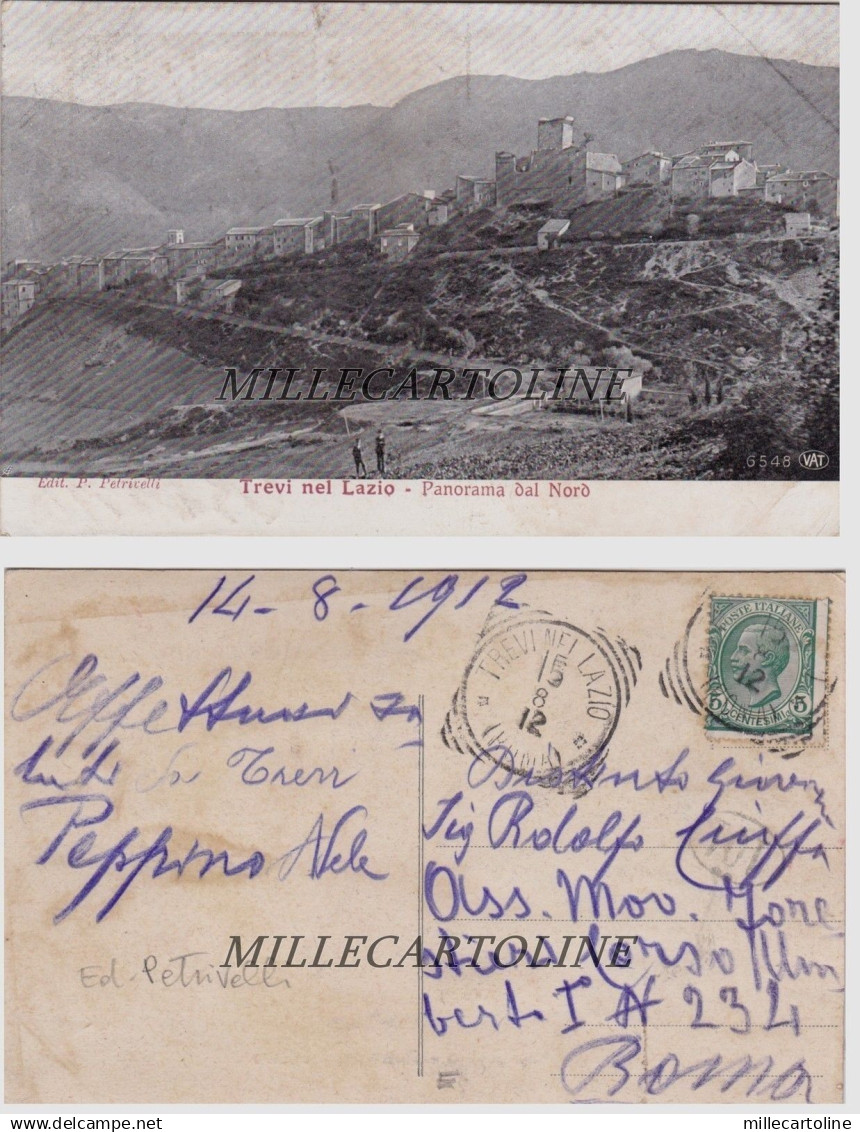 MILLECARTOLINE
6548 VAT
Edit. P. Petrivelli
Trevi nel Lazio - Panorama dal Nord
14-8-1912
TREVI NEL LAZIO
15
8
12
(ROMA)
POSTE ITALIANE
12
5
CENTESIMI
Affettuosi sa
luti da Trevi
Peppino
Sig Rodolfo Ciuffa
Ass. Mov. Fore
stieri Corso Um
berto I N 234
Roma
MILLECARTOLINE
Ed. Petrivelli
delcampe.net
millecartoline